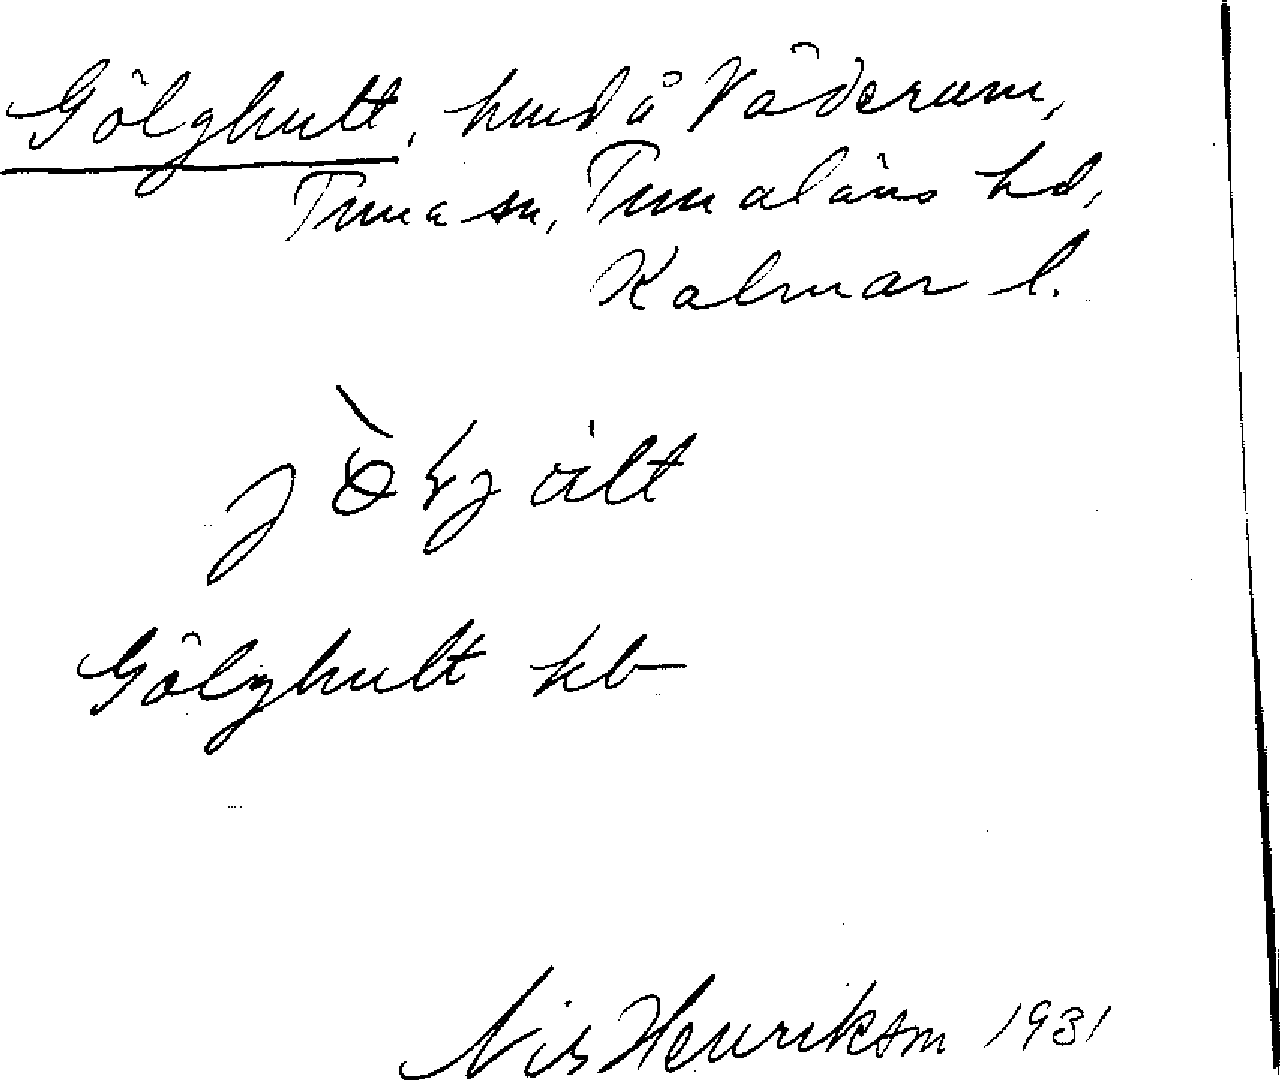 Gölghult, hmd å Väderum,
Tuna sn, Tunaläns hd,
Kalmar l.
Gölghult kb
Nils Henrikson 1931